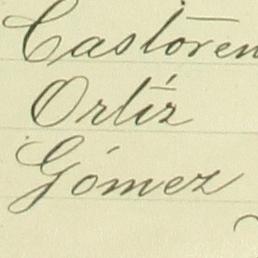 Castoren
Ortíz
Gómez